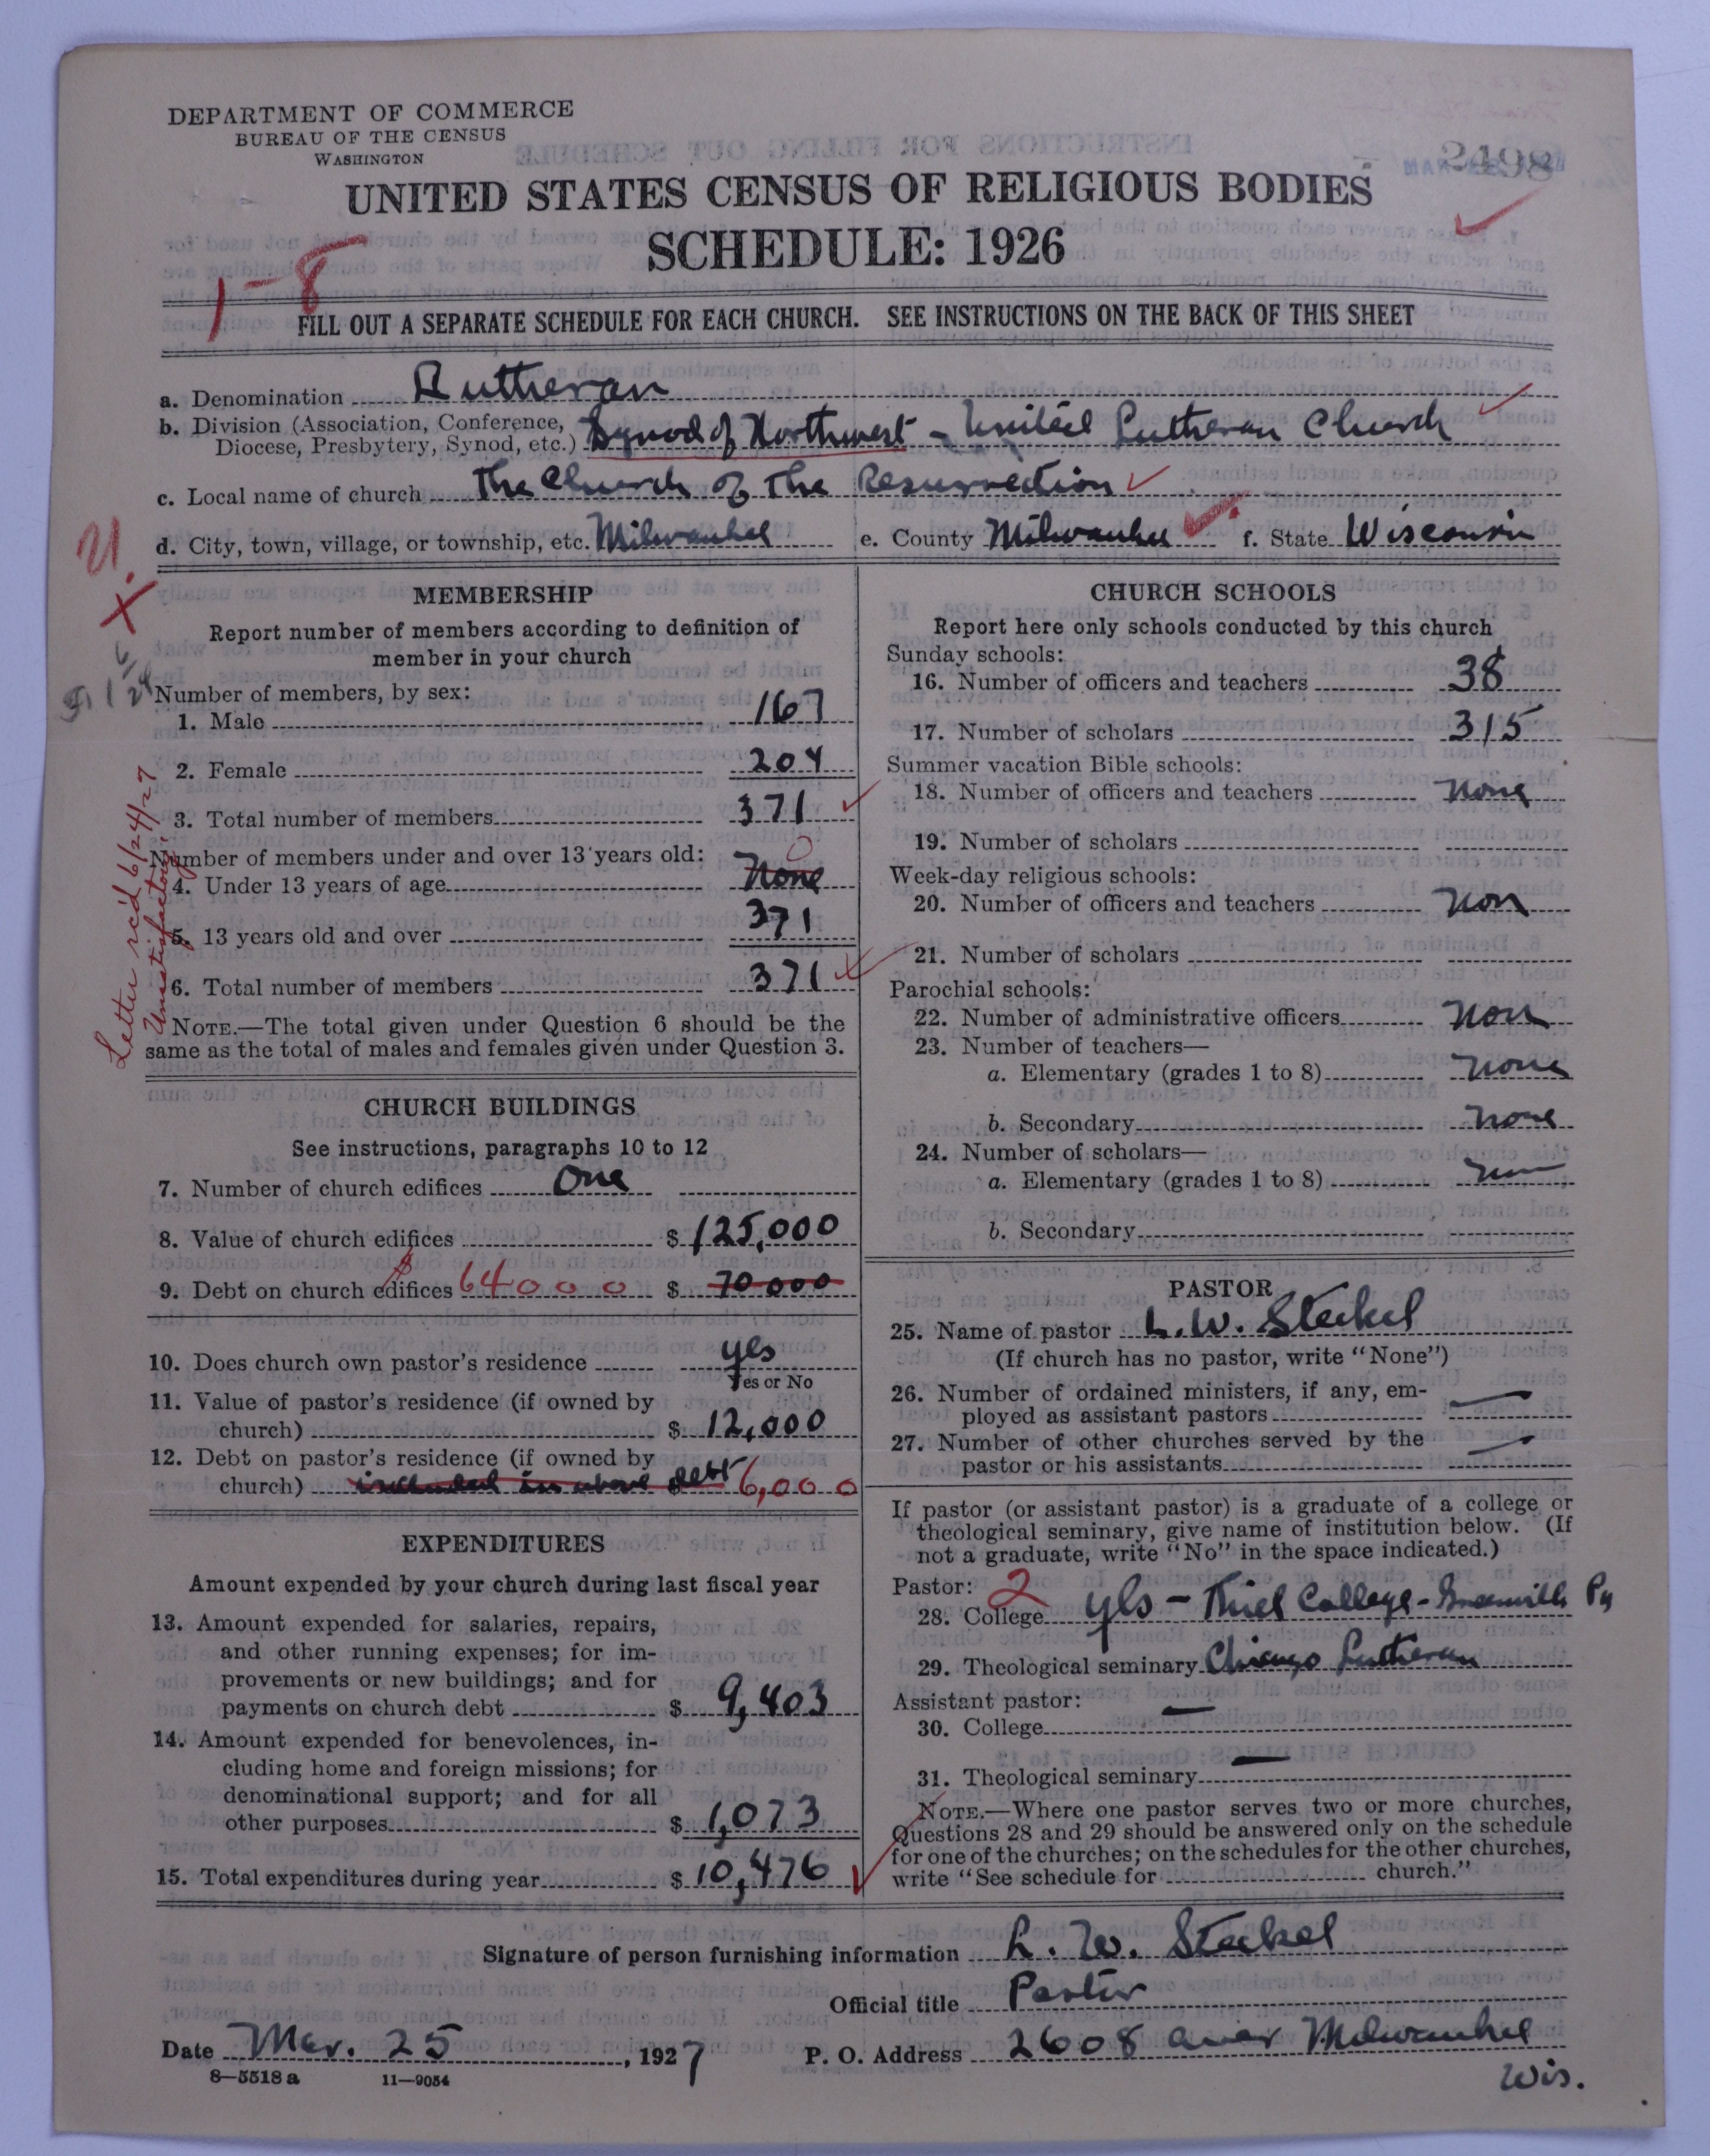 DEPARTMENT OF COMMERCE
BUREAU OF THE CENSUS
WASHINGTON
2498
UNITED STATES CENSUS OF RELIGIOUS BODIES
SCHEDULE: 1926
1-8
FILL OUT A SEPARATE SCHEDULE FOR EACH CHURCH. SEE INSTRUCTIONS ON THE BACK OF THIS SHEET
a. Denomination Lutheran
b. Division (Association, Conference,
Diocese, Presbytery, Synod, etc.) Synod of Northwest - United Lutheran Church
c. Local name of church The Church of the Resurrection
d. City, town, village, or township, etc. Milwaukee e. County Milwaukee f. State Wisconsin
MEMBERSHIP
Report number of members according to definition of
member in your church
Number of members, by sex:
1. Male 167
2. Female 204
3. Total number of members 371
Number of members under and over 13 years old:
0
4. Under 13 years of age None
5. 13 years old and over 371
6. Total number of members 371
NOTE.—The total given under Question 6 should be the
same as the total of males and females given under Question 3.
Letter rec'd 6/24/27
Unsatisfactory
CHURCH BUILDINGS
See instructions, paragraphs 10 to 12
7. Number of church edifices One
8. Value of church edifices $ 125,000
9. Debt on church edifices 64000 $ 70000
10. Does church own pastor's residence yes
Yes or No
11. Value of pastor's residence (if owned by
church) $ 12,000
12. Debt on pastor's residence (if owned by
church) included in above debt 6,000
EXPENDITURES
Amount expended by your church during last fiscal year
13. Amount expended for salaries, repairs,
and other running expenses; for im-
provements or new buildings; and for
payments on church debt $ 9,403
14. Amount expended for benevolences, in-
cluding home and foreign missions; for
denominational support; and for all
other purposes $ 1,073
15. Total expenditures during year $ 10,476
CHURCH SCHOOLS
Report here only schools conducted by this church
Sunday schools:
16. Number of officers and teachers 38
17. Number of scholars 315
Summer vacation Bible schools:
18. Number of officers and teachers None
19. Number of scholars
Week-day religious schools:
20. Number of officers and teachers Non
21. Number of scholars
Parochial schools:
22. Number of administrative officers Non
23. Number of teachers—
a. Elementary (grades 1 to 8) None
b. Secondary None
24. Number of scholars—
a. Elementary (grades 1 to 8)
b. Secondary
PASTOR
25. Name of pastor L. W. Steckel
(If church has no pastor, write "None")
26. Number of ordained ministers, if any, em-
ployed as assistant pastors —
27. Number of other churches served by the
pastor or his assistants —
If pastor (or assistant pastor) is a graduate of a college or
theological seminary, give name of institution below. (If
not a graduate, write "No" in the space indicated.)
Pastor: 2
28. College yes - Thiel College - Greenville Pa
29. Theological seminary Chicago Lutheran
Assistant pastor:
30. College —
31. Theological seminary —
NOTE.—Where one pastor serves two or more churches,
Questions 28 and 29 should be answered only on the schedule
for one of the churches; on the schedules for the other churches,
write "See schedule for church."
Signature of person furnishing information L. W. Steckel
Official title Pastor
Date Mar. 25, 1927 P. O. Address 2608 Milwaukee
Wis.
8—5518 a 11—9054